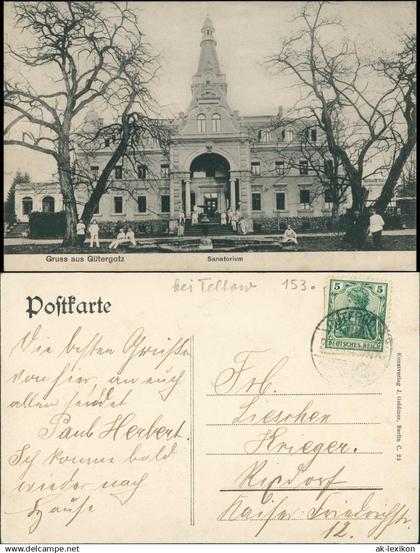 Gruss aus Gütergotz
Sanatorium
bei Teltow 153.
Postkarte
5 5
DEUTSCHES REICH
Die besten Grüße
von hier, an euch
allen sendet
Paul Herbert.
Ich komme bald
wieder nach
Hause
Frl.
Lieschen
Krieger.
Rixdorf
Kaiser Friedrichstr.
12.
Kunstverlag J. Goldiner, Berlin C. 25
© www.ak-lexikon.com
ak-lexikon